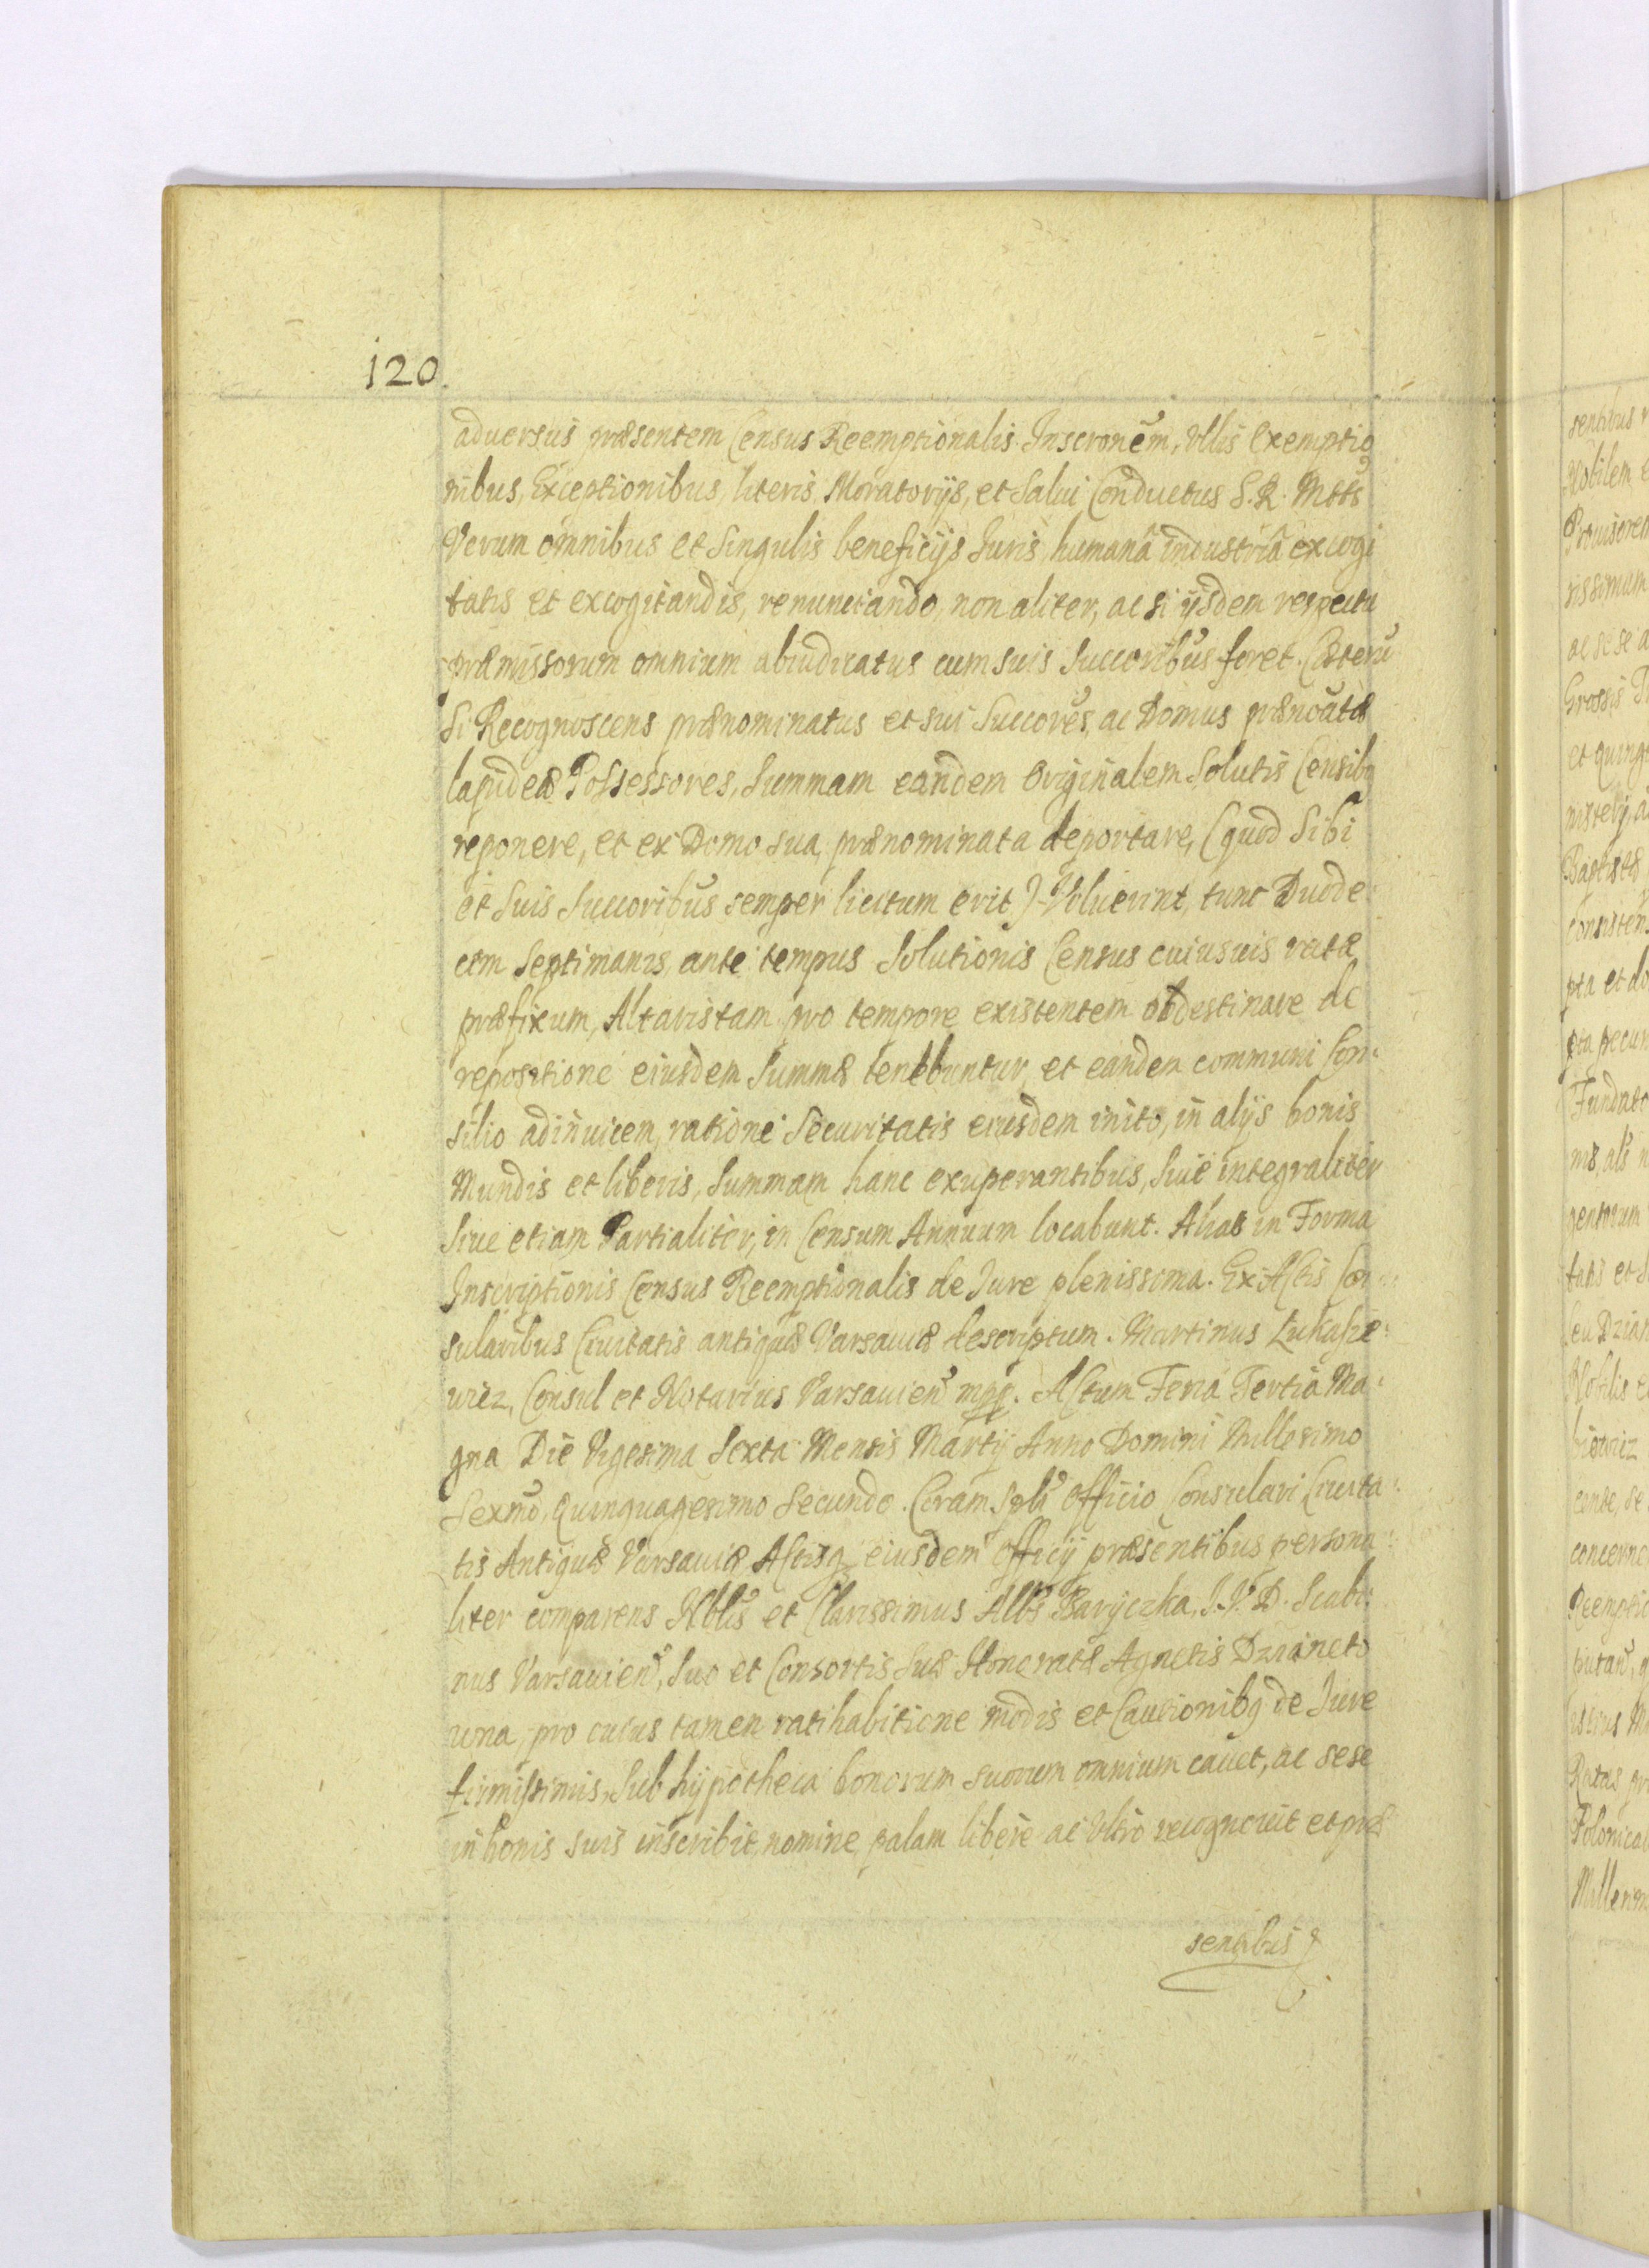 120.
aduersus præsentem Census Reemptionalis Inscronem, Vllis Exemptio
nibus, Exceptionibus, literis Moratorijs, et Salui Conductus S. R. Mttis
Verum omnibus et Singulis beneficijs Iuris, humanâ industriâ excogi
tatis et excogitandis, renuntiando, non aliter, ac si ijsdem respectu
præmissorum omnium abiudicatus cum suis Succoribus foret. Cæterũ
Si Recognoscens prænominatus et sui Succores, ac Domus prænoatæ
lapideæ Possessores, Summam eandem Originalem Solutis Censibq
reponere, et ex Domo sua prænominata deportare, (quod Sibi
et Suis Succoribus semper licitum erit) Voluerint, tunc Duode-
cim Septimanis ante tempus Solutionis Census cuiusuis ratæ
præfixum, Altaristam pro tempore existentem obdestinare de
repositione eiusdem Summæ tenebuntur, et eandem communi Con-
silio adinuicem, ratione Securitatis eiusdem inito, in alijs bonis
Mundis et liberis, Summam hanc exuperantibus, Siue integraliter
Siue etiam Partialiter, in Censum Annuum locabunt. Alias in Forma
Inscriptionis Census Reemptionalis de Iure plenissima. Ex Actis Con-
sularibus Ciuitatis antiquæ Varsauiæ descriptum. Martinus Lukasze-
wicz, Consul et Notarius Varsauien mpp. Actum Feria Tertia Ma-
gna Die Vigesima Sexta Mensis Martij Anno Domini Millesimo
Sexmo, Quinquagesimo Secundo. Coram Spli Officio Consulari Ciuita-
tis Antiquæ Varsauiæ Actisq eiusdem Officij præsentibus persona-
liter comparens Nblis et Clarissimus Albs Baryczka, I. V. D. Scabi-
nus Varsauien, Suo et Consortis Suæ Honoratæ Agnetis Dzianeto
wna, pro cuius tamen ratihabitione modis et Cautionibq de Iure
firmissimis, Sub hypotheca bonorum suorum omnium cauet, ac sese
in bonis suis inscribit, nomine, palam libere ac Vltro recognouit et præ
sentibus